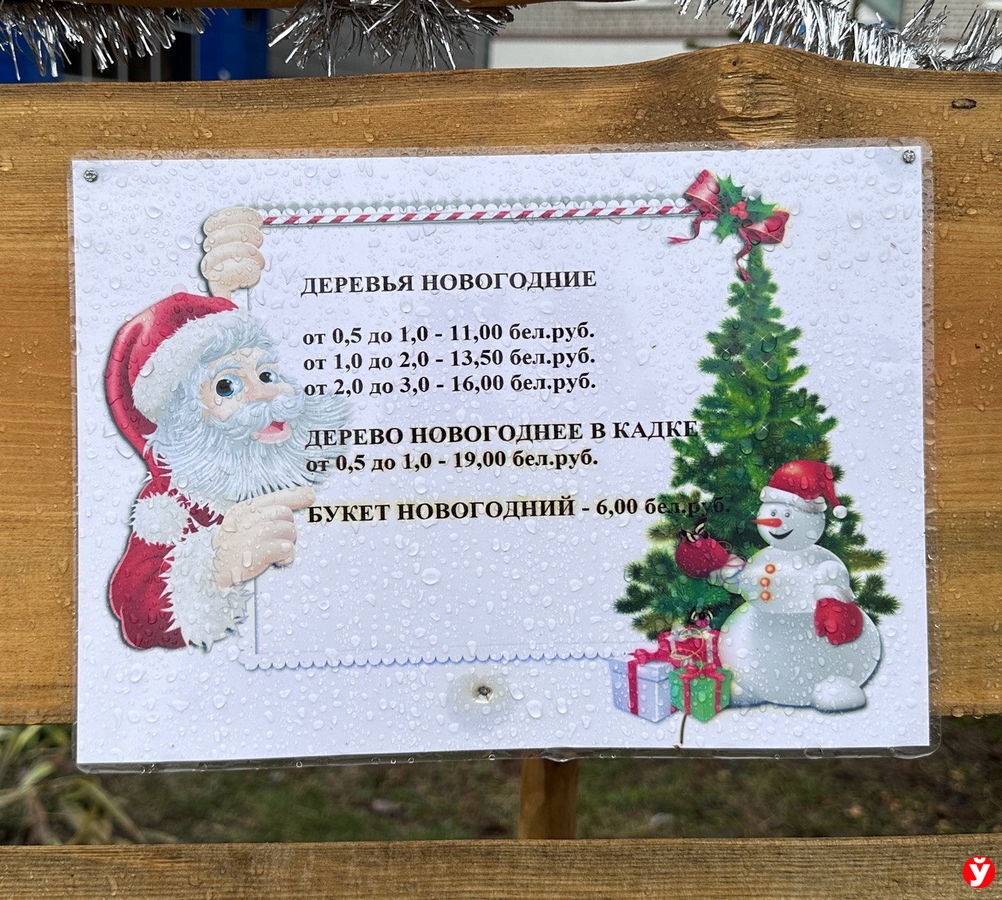 ДЕРЕВЬЯ НОВОГОДНИЕ
от 0,5 до 1,0 - 11,00 бел.руб.
от 1,0 до 2,0 - 13,50 бел.руб.
от 2,0 до 3,0 - 16,00 бел.руб.
ДЕРЕВО НОВОГОДНЕЕ В КАДКЕ
от 0,5 до 1,0 - 19,00 бел.руб.
БУКЕТ НОВОГОДНИЙ - 6,00 бел.руб.
Ў